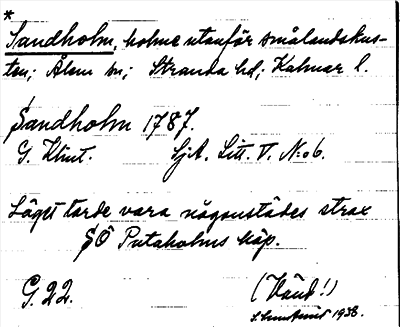 *
Sandholm, holme utanför smålandskus-
ten; Ålem sn; Stranda hd; Kalmar l.
Sandholm 1787.
G. Klint. SjA. Litt. V. N:o 6.
Läget torde vara någonstädes strax
SÖ Putaholms kap.
G. 22. (Vänd!)
1938.